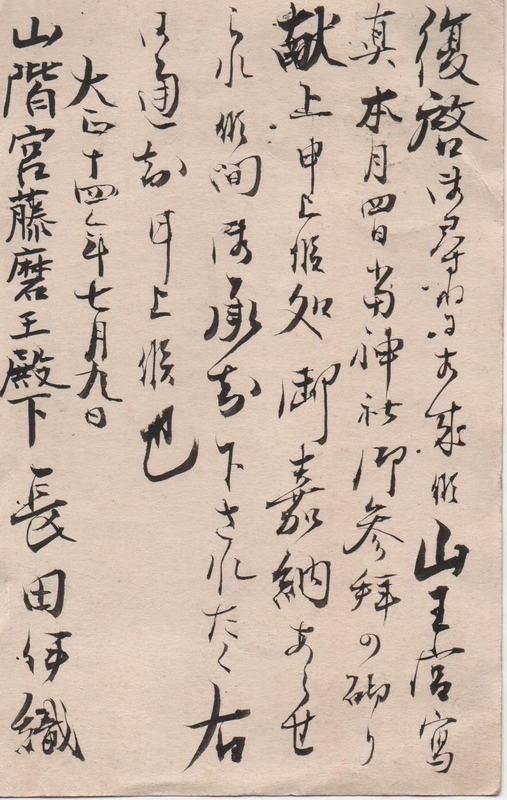 復啓御尋ね成候山王宮寫
真本月四日當神社御参拝の砌り
献上申上候処御嘉納あらせ
られ候間御承知下されたく右
御通知申上候也
大正十四年七月九日
山階宮藤麿王殿下 長田伊織